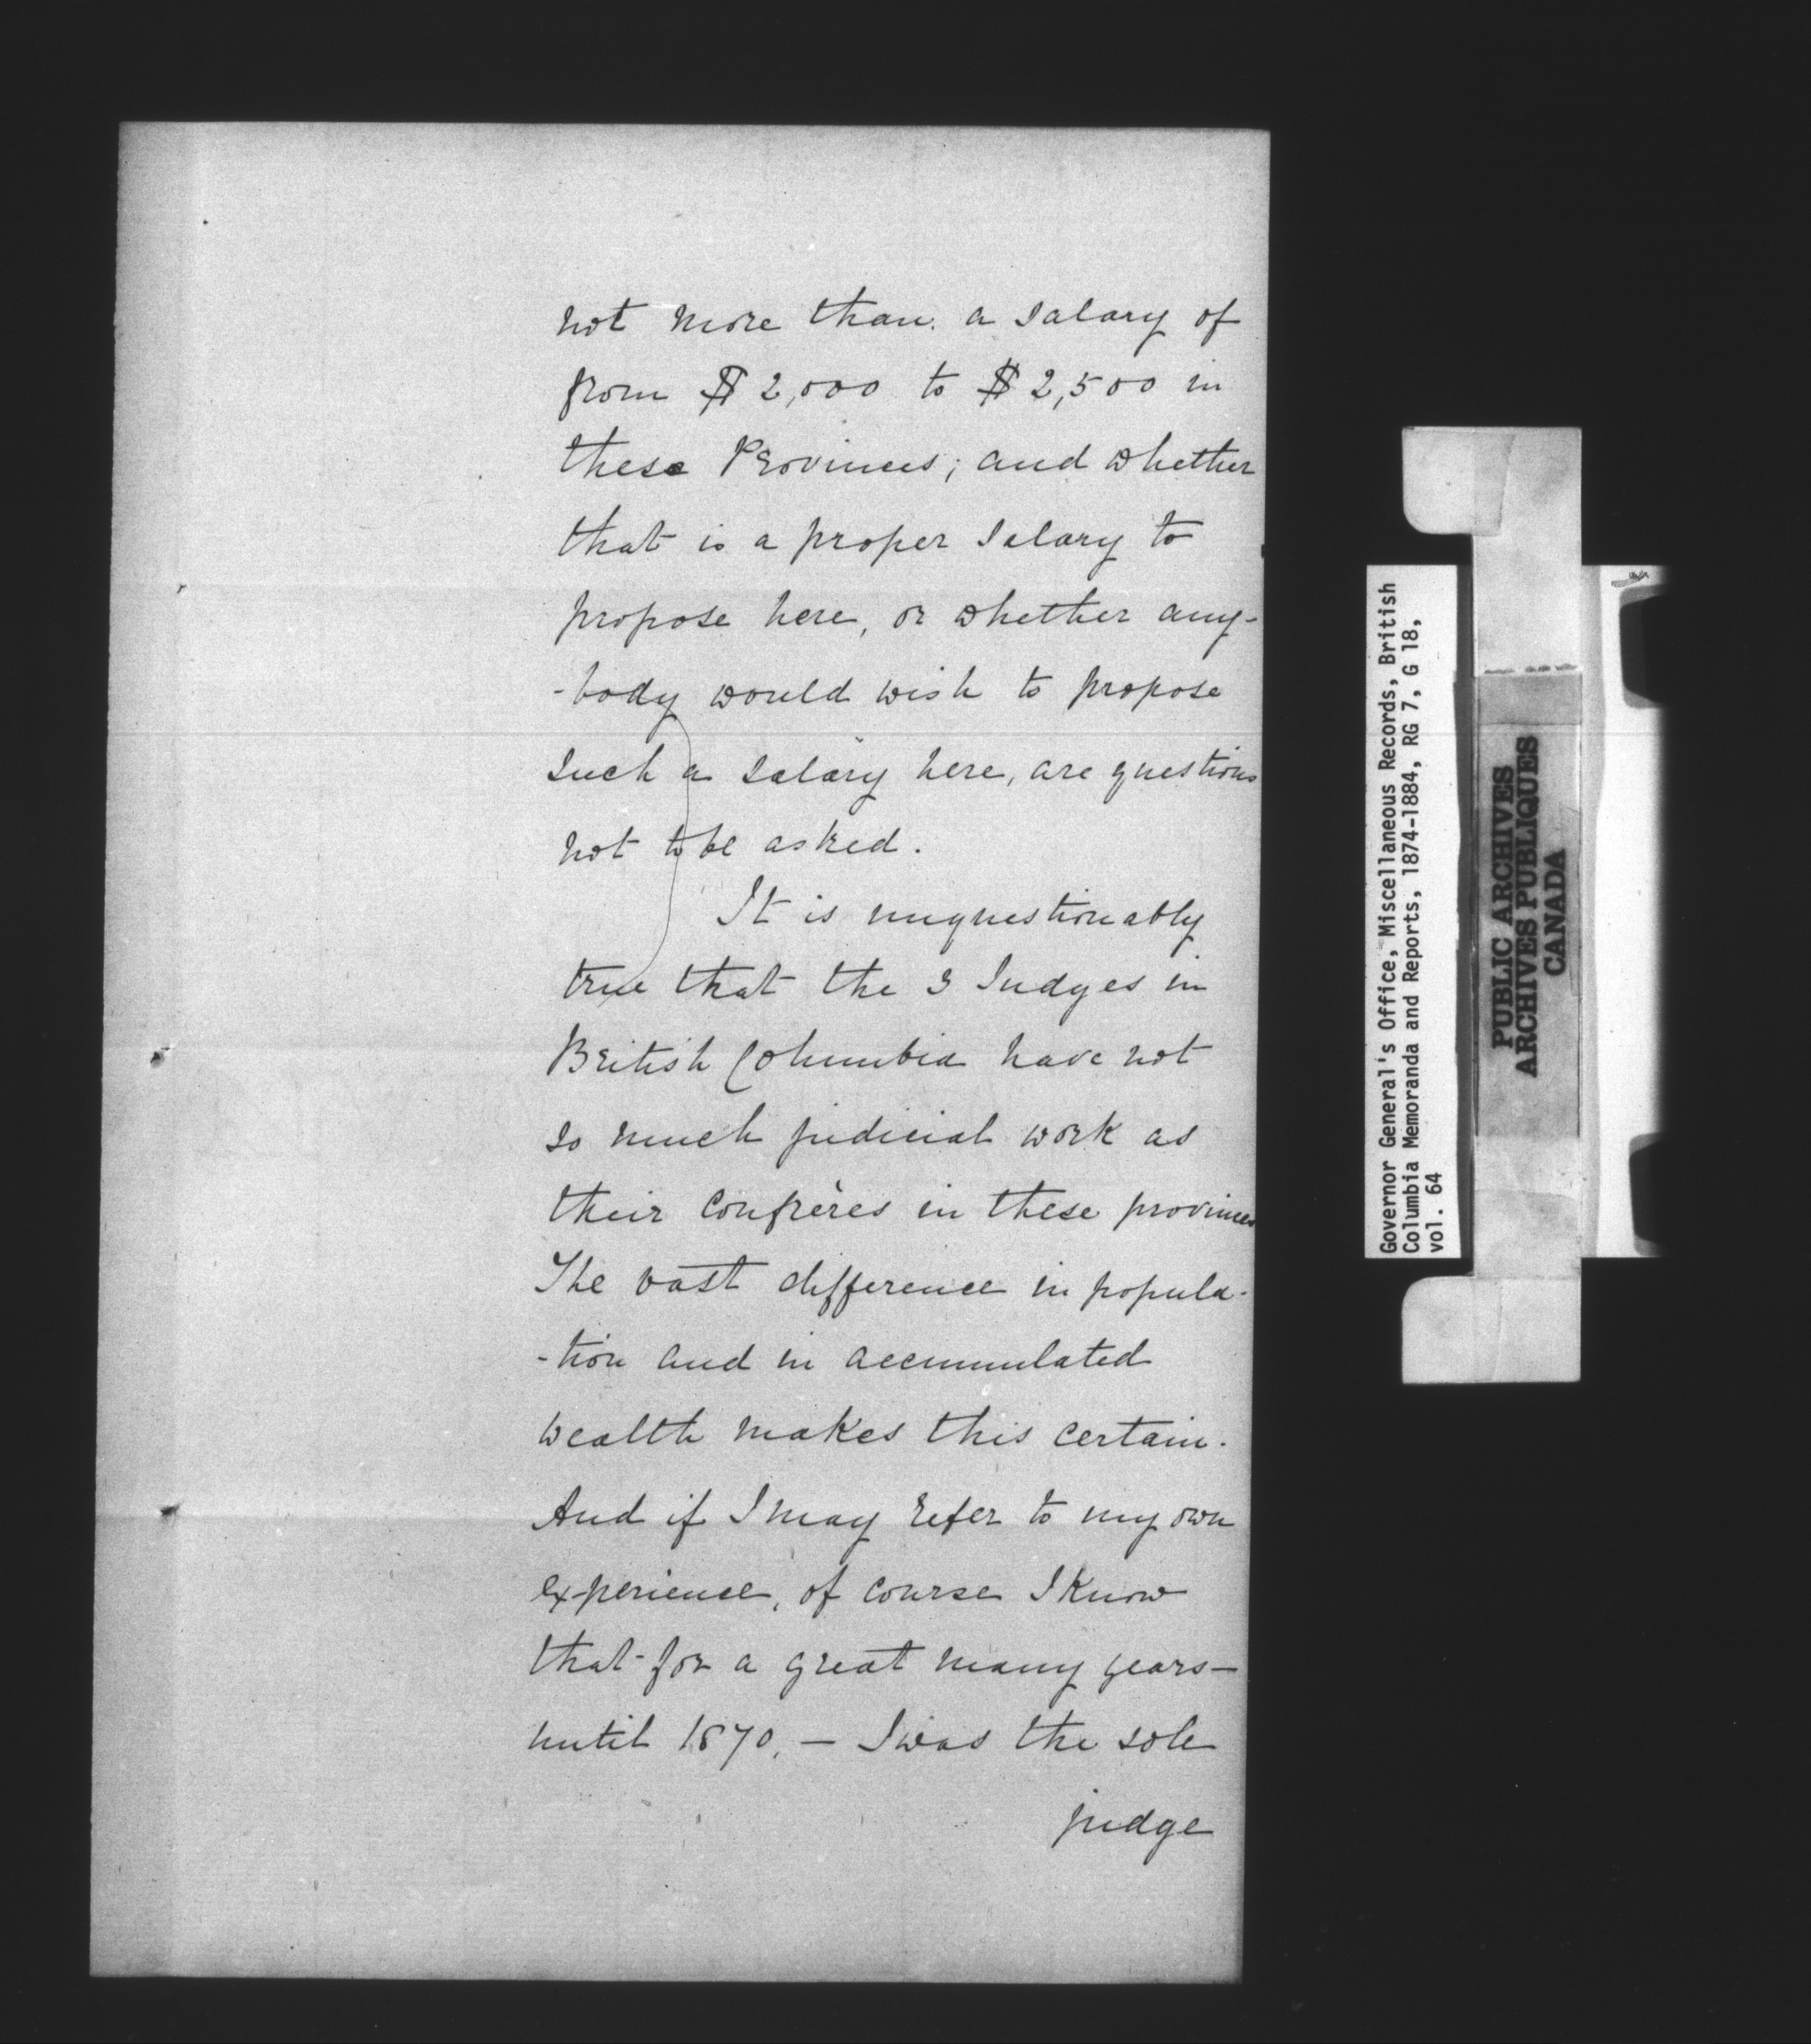 not more than a salary of
from $2,000 to $2,500 in
these Provinces; and whether
that is a proper salary to
propose here, or whether any-
-body would wish to propose
such a salary here, are questions
not to be asked.
It is unquestionably
true that the 3 Judges in
British Columbia have not
so much judicial work as
their confrères in these provinces
The vast difference in popula-
-tion and in accumulated
wealth makes this certain.
And if I may refer to my own
experience, of course I know
that for a great many years—
until 1870, — I was the sole
judge
Governor General's Office, Miscellaneous Records, British
Columbia Memoranda and Reports, 1874-1884, RG 7, G 18,
vol. 64
PUBLIC ARCHIVES
ARCHIVES PUBLIQUES
CANADA